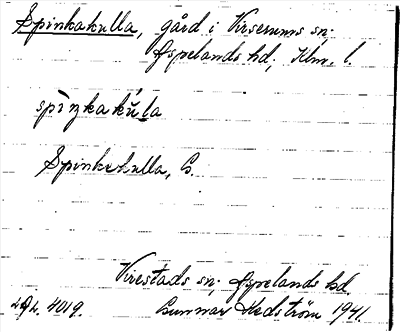 Spinkakulla, gård i Virserums sn;
Aspelands hd; Klm. l.
spìŋkakŭ́la
Spinkekulla, G.
Virestads sn; Aspelands hd
Gunnar Hedström 1941.
4019.